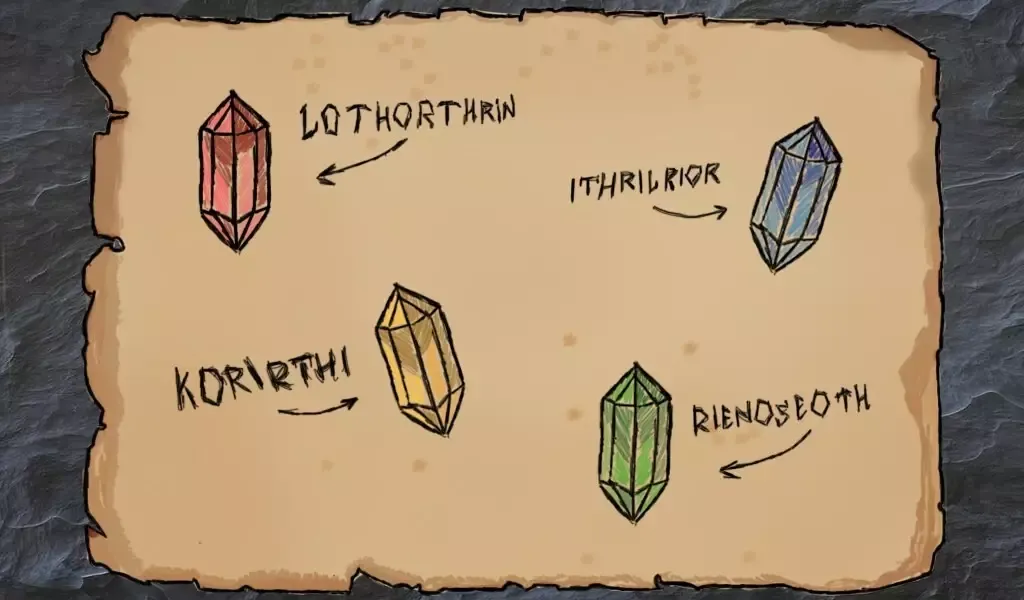 LOTHORTHRIN
ITHRILRIOR
KORIRTHI
RIENOSEOTH